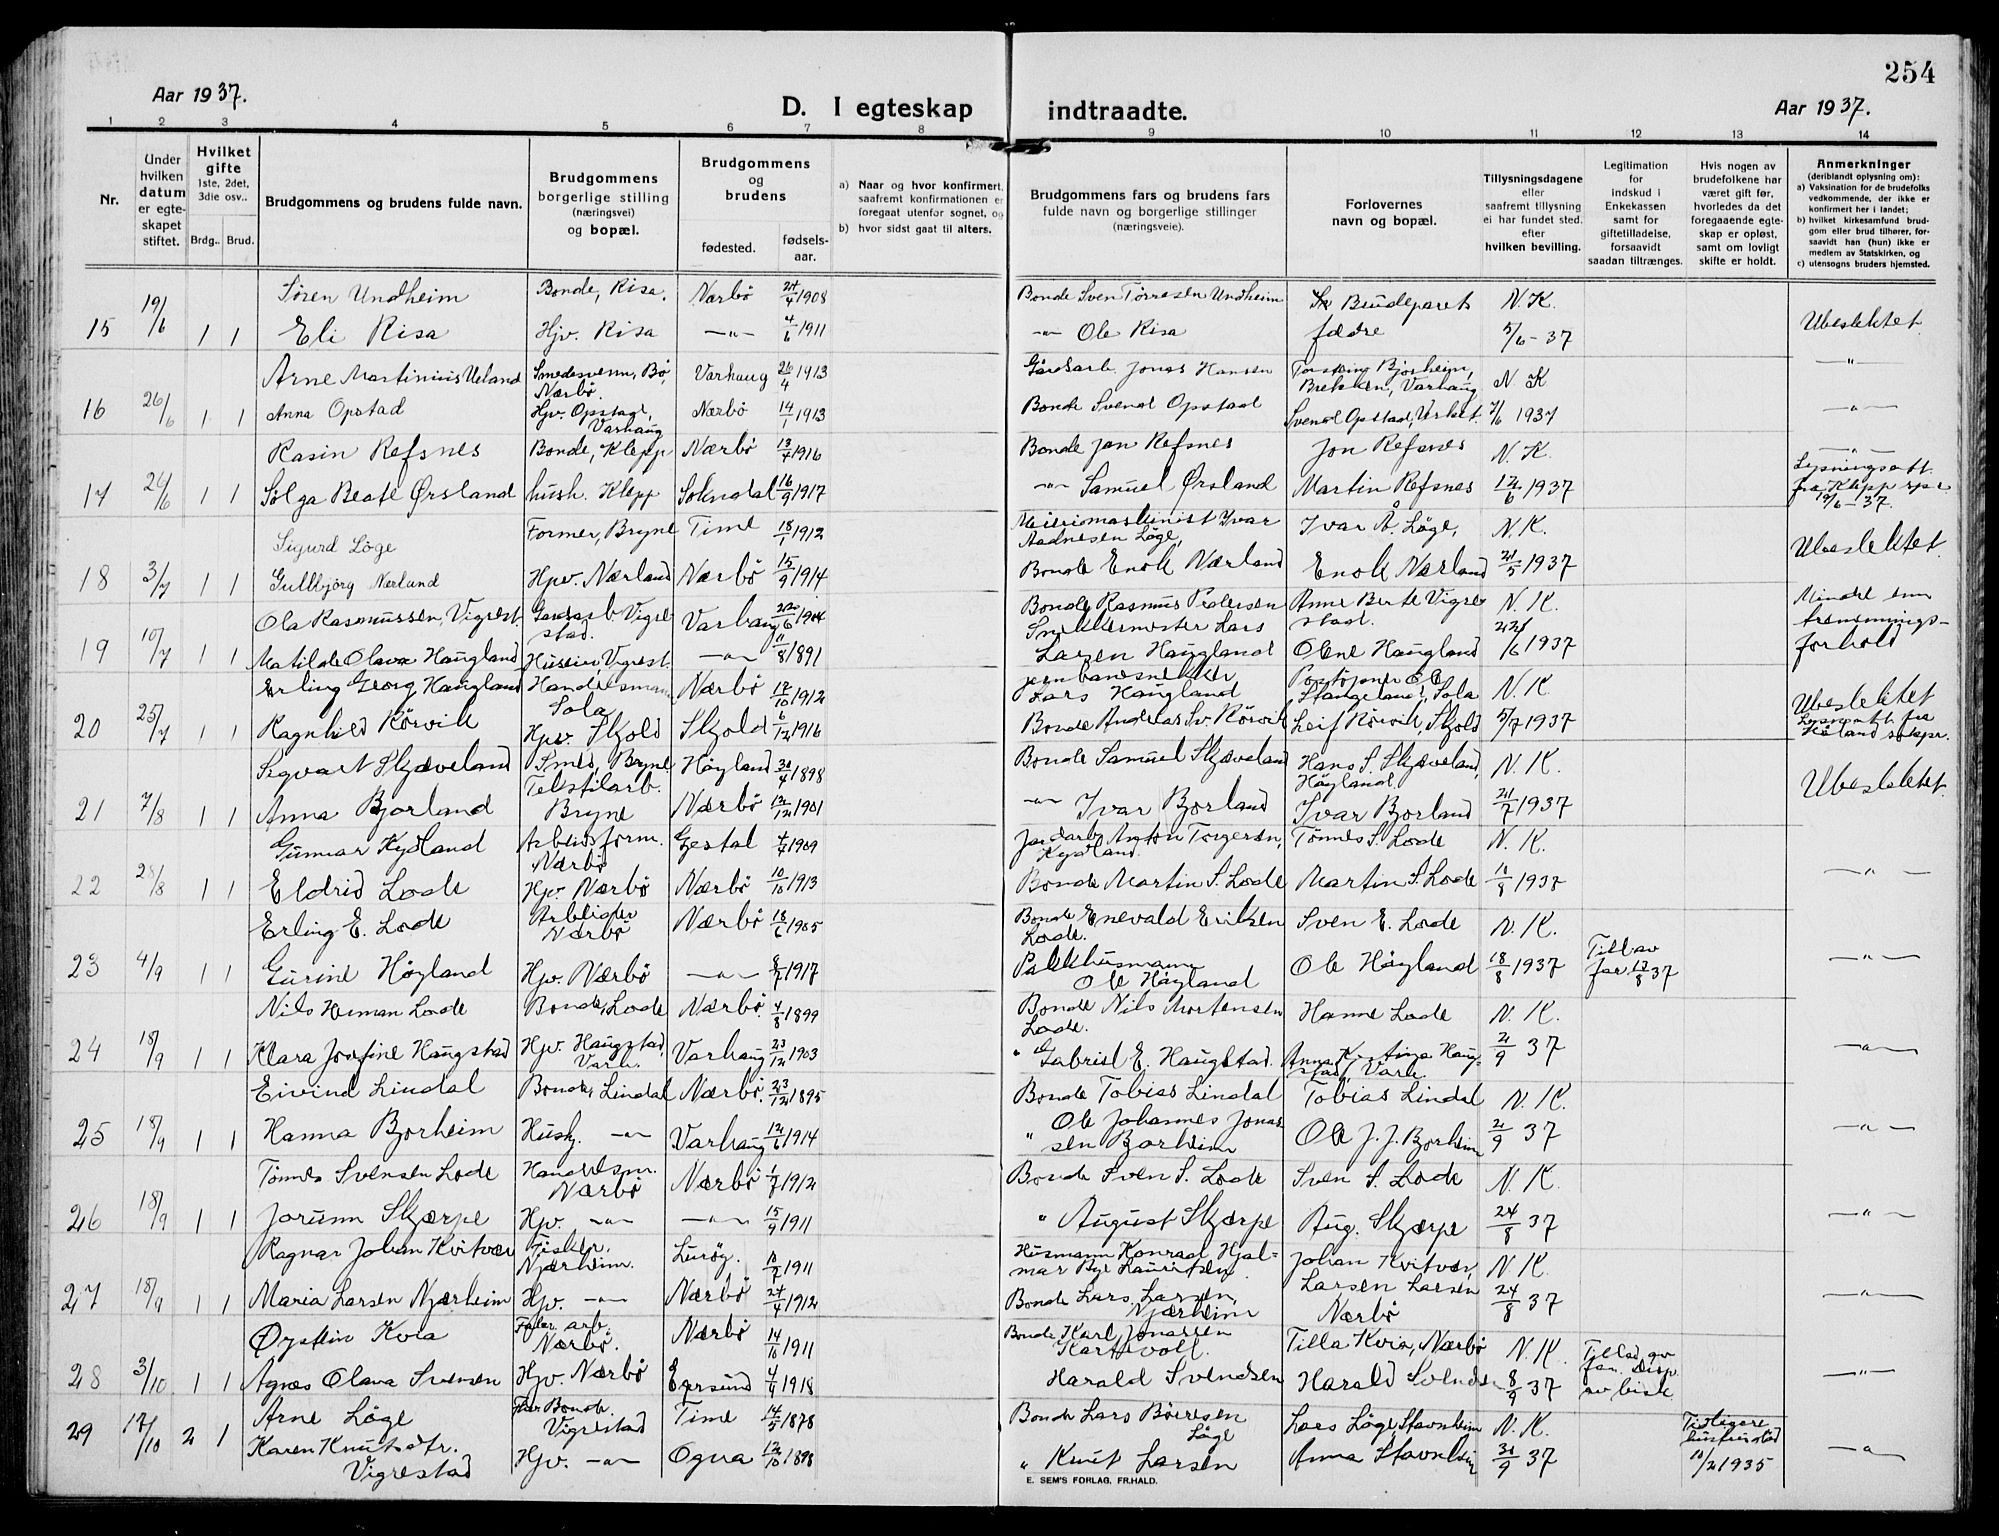 254
Aar 1937.
D. I egteskap indtraadte.
Aar 1937.
1 2 3 4 5 6 7 8 9 10 11 12 13 14
Nr.
Under hvilken datum er egteskapet stiftet.
Hvilket gifte 1ste, 2det, 3die osv..
Brdg.. Brud.
Brudgommens og brudens fulde navn.
Brudgommens borgerlige stilling (næringsvei) og bopæl.
Brudgommens og brudens
fødested. fødselsaar.
a) Naar og hvor konfirmert, saafremt konfirmationen er foregaat utenfor sognet, og
b) hvor sidst gaat til alters.
Brudgommens fars og brudens fars fulde navn og borgerlige stillinger (næringsveie).
Forlovernes navn og bopæl.
Tillysningsdagene eller saafremt tillysning ei har fundet sted, efter hvilken bevilling.
Legitimation for indskud i Enkekassen samt for giftetilladelse, forsaavidt saadan tiltrænges.
Hvis nogen av brudefolkene har været gift før, hvorledes da det foregaaende egteskap er opløst, samt om lovligt skifte er holdt.
Anmerkninger (deriblandt oplysning om):
a) Vaksination for de brudefolks vedkommende, der ikke er konfirmert her i landet;
b) hvilket kirkesamfund brudgom eller brud tilhører, forsaavidt han (hun) ikke er medlem av Statskirken, og
c) utensogns bruders hjemsted.
Søren Undheim Bonde, Risa. Nærbö 24/4 1908 Bonde Sven Tørresen Undheim Brudeparets N.K.
15 19/6 1 1 Eli Risa Hjv. Risa —"— 4/6 1911 —"— Ole Risa fædre 5/6-37 Ubeslektet
Arne Martinius Ueland Smedesvenn, Bø, Nærbø. Varhaug 26/4 1913 Gårdsarb. Jonas Hansen Bjorheim, Brekken, Varhaug N.K —"—
16 26/6 1 1 Anna Opstad Hjv. Opstad, Varhaug Nærbø 14/1 1913 Bonde Svend Opstad Svend Opstad, 7/6 1937 —"—
Rasin Refsnes Bonde, Klepp Nærbö 13/4 1916 Bonde Jon Refsnes Jon Refsnes N.K. —"—
17 26/6 1 1 Solga Beate Ørsland hush. Klepp Sokndal 16/9 1917 —"— Samuel Ørsland Martin Refsnes 12/6 1937 Lysningsatt. fra Klepp spr 19/6-37.
Sigurd Löge Former, Bryne Time 18/1 1912 Meierimaskinist Ivar Aadnesen Löge, Ivar Å. Löge, N.K.
18 3/7 1 1 Gullbjörg Nærland Hpv. Nærland Nærbö 15/9 1914 Bonde Enok Nærland Enok Nærland 21/5 1937 Ubeslektet
Ola Rasmussen, Vigrest. Gardsarb Vigrestad. Varhaug 22/6 1904 Bonde Rasmus Pedersen Anne Berte Vigrestad. N.K. Mindre enn
19 10/7 1 1 Matilde Olava Haugland Husein, Vigrest. —"— 11/8 1891 Snekkermester Lars Larsen Haugland Olene Haugland 22/6 1937 tremenningsforhold
Erling Georg Haugland Handelsmann Sola Nærbö 17/10 1912 Lars Haugland Stangeland, Sola N.K. Ubeslektet
20 25/7 1 1 Ragnhild Rörvik Hpv. Skjold Skjold 6/12 1916 Bonde Andreas Sv. Rörvik Leif Rörvik, Skjold 5/7 1937 Lysnatt. fra
Sigvart Skjæveland Smed, Bryne Höyland 30/4 1898 Bonde Samuel Skjæveland Hans S. Skjæveland, Höyland. N.K.
21 7/8 1 1 Anna Bjorland Tekstilarb. Bryne Nærbö 12/12 1901 —"— Ivar Bjorland Ivar Bjorland 21/7 1937 Ubeslektet.
Gunnar Kydland Arbeidsform. Nærbö Gjestal 4/4 1909 Anton Torgersen, Kydland. Tönnes S. Lode N.K.
22 28/8 1 1 Eldrid Lode Hjv. Nærbö Nærbö 10/10 1913 Bonde Martin S. Lode Martin S. Lode 11/8 1937 —"—
Erling E. Lode Arbeider Nærbö Nærbö 18/6 1905 Bonde Enevald Eriksen Lode. Sven E. Lode N.K.
23 4/9 1 1 Gurine Höyland Hjv. Nærbö —"— 8/7 1917 Pakkhusmann Ole Höyland Ole Höyland 18/8 1937 Till av far 17/8 37 —"—
Nils Herman Lode Bonde, Lode Nærbö. 4/8 1899 Bonde Nils Mortensen Lode. Hanne Lode N.K.
24 18/9 1 1 Klara Josefine Haugstad Hjv. Haugstad, Varh. Varhaug 23/12 1903 " Gabriel E. Haugstad. Anna Haugstad, Varh. 2/9 37 —"—
Eivind Lindal Bonde, Lindal Nærbö. 23/12 1895 Bonde Tobias Lindal Tobias Lindal N.K.
25 18/9 1 1 Hanna Bjorheim Husk. —"— Varhaug 12/6 1914 " Ole Johannes Jonassen Bjorheim Ole J. J. Bjorheim 2/9 37 —"—
Tönnes Svensen Lode Handelsm. Nærbö Nærbö 1/7 1912 Bonde Sven S. Lode Sven S. Lode N.K.
26 18/9 1 1 Jorunn Skjærpe Hjv. —"— —"— 15/9 1911 " August Skjærpe Aug. Skjærpe 24/8 37 —"—
Ragnar Johan Kvitvær Fisker. Njærheim. Luröy. 10/7 1911 Husmann Konrad Hjalmar Lauritsen Johan Kvitvær, N.K.
27 18/9 1 1 Maria Larsen Njærheim Hjv. —"— Nærbö 24/4 1912 Bonde Lars Larsen, Njærheim Larsen Larsen Nærbö 24/8 37 —"—
Øystein Kvia arb. Nærbö. Nærbö 14/10 1911 Bonde Karl Jonassen Tilla Kvia, Nærbö N.K. Tillad av
28 3/10 1 1 Agnes Olava Svensen Hjv. Nærbö Egersund 4/4 1918 Harald Svendsen Harald Svendsen 8/9 37 far. Disp. av bisk. —"—
Arne Löge Bonde Vigrestad Time 14/5 1878 Bonde Lars Börresen Löge Lars Löge, Stavnheim N.K. Tidligere
29 17/10 2 1 Karen Knutsdtr. Vigrestad Hjv. —"— Ogna 12/10 1898 " Knut Larsen Anna Stavnheim 30/9 37 hustru död 10/2 1935 —"—
E. SEM'S FORLAG, FR.HALD.